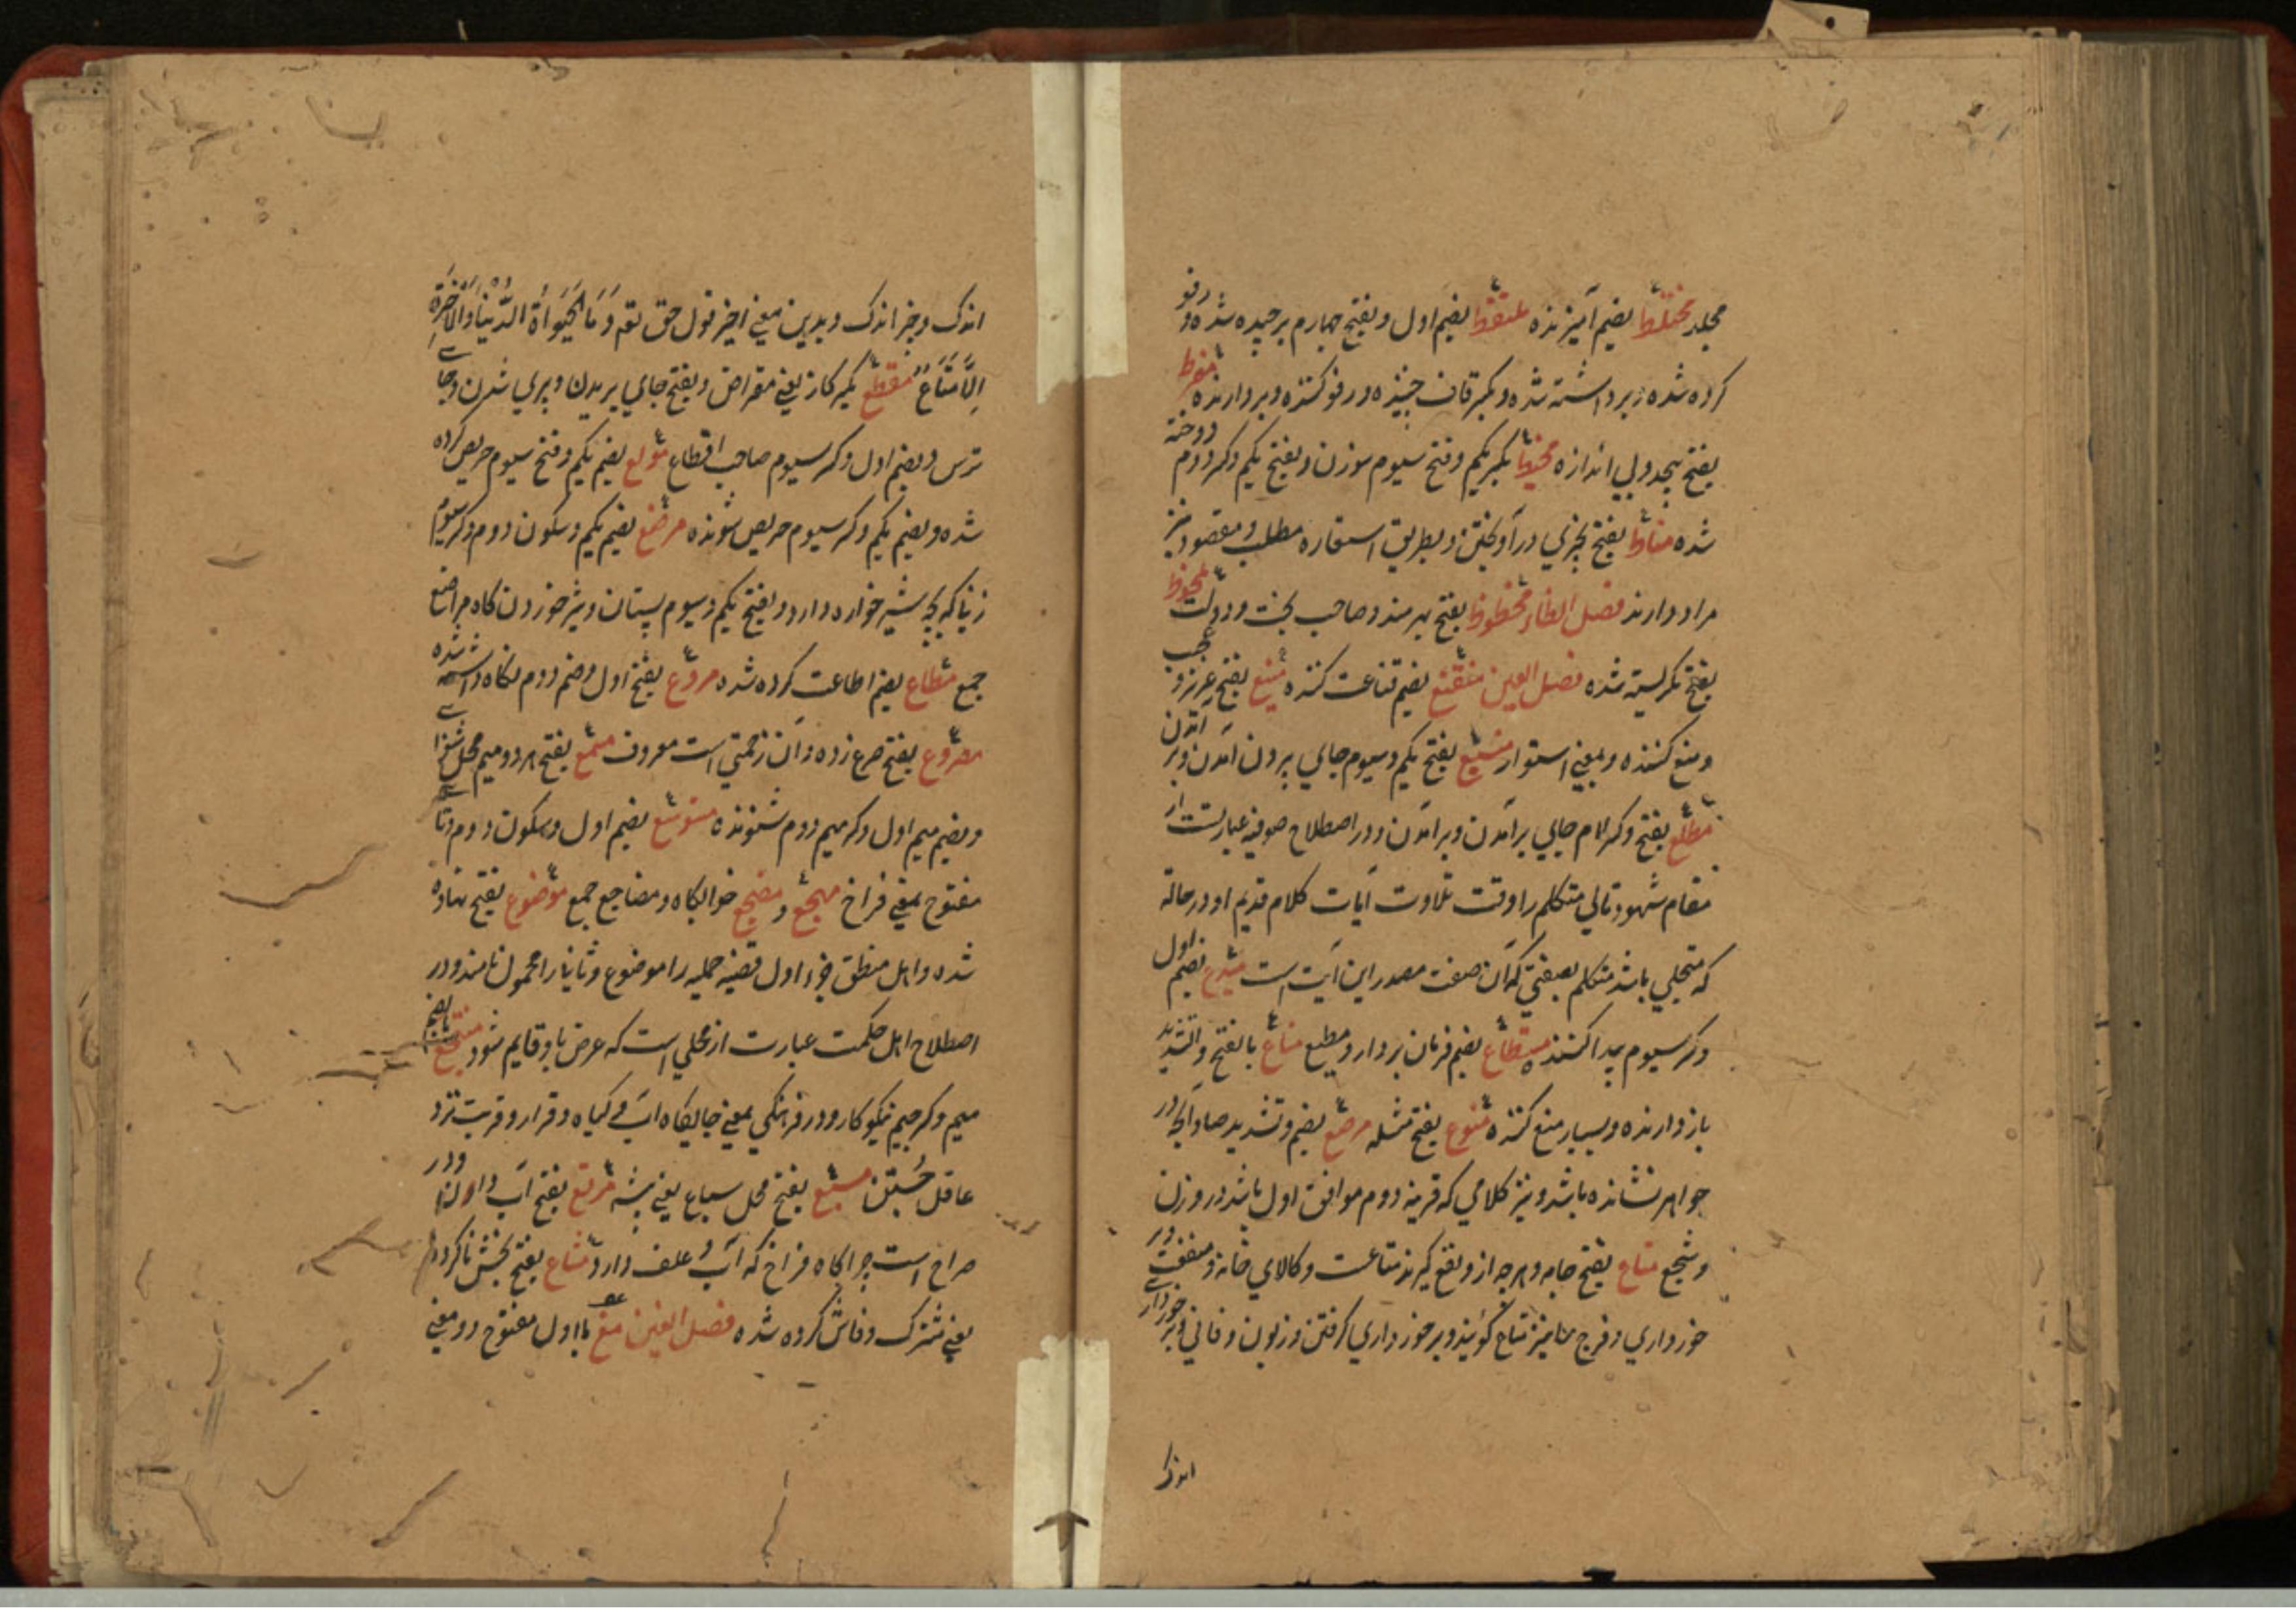 مجلد مختلط بضم آمیزنده ملتقط بضم اول و بفتح چهارم برچیده شده و رفو
کرده شده و برداشته شده و بکسر قاف چیننده و رفو کننده و بردارنده مفرط
بفتح بیحد و بی اندازه مخیط بکسر یکم و فتح سیوم سوزن و بفتح یکم و کسر دوم دوخته
شده مناط بفتح بچیزی درآویختن و بطریق استعاره مطلب و مقصود نیز
مراد دارند فصل الظاء محظوظ بفتح بهرمند و صاحب بخت و دولت ملحوظ
بفتح نگریسته شده فصل العین مقنع بضم قناعت کننده منیع بفتح عزیز و عجب
و منع کننده و بمعنی استوار منبع بفتح یکم و سیوم جای بیرون آمدن و بر آمدن
مطلع بفتح و کسر لام جای برآمدن و برآمدن و در اصطلاح صوفیه عبارتست از
مقام شهود تالی متکلم را وقت تلاوت آیات کلام قدیم او در حالة
که متجلی باشد متکلم بصفتی که آن صفت مصدر این آیت است مبدع بضم اول
و کسر سیوم پیدا کننده مستطاع بضم فرمان بردار و مطیع مناع بالفتح و التشدید
باز دارنده و بسیار منع کننده منوع بفتح مثله مرصع بضم و تشدید صاد آنچه در
جواهر نشانده باشد و نیز کلامی که قرینه دوم موافق اول باشد در وزن
و سجع متاع بفتح جامه و هرچه ازو نفع گیرند متاعست و کالای خانه و منفعت و بر
خورداری و فرج را نیز متاع گویند و برخورداری گرفتن و زبون و فانی و برخورداری
اندک
اندک و چیز اندک و بدین معنی اخیر قول حق تعه وَمَا الْحَيَوٰةُ الدُّنْيَا وَالْآخِرَةِ
اِلَّا مَتَاعٌ مقطع بکسر کاز یعنی مقراض و بفتح جای بریدن و بری شدن و جای
ترس و بضم اول و کسر سیوم صاحب اقطاع مولع بضم یکم و فتح سیوم حریص کرده
شده و بضم یکم و کسر سیوم حریص شونده مرضع بضم یکم و سکون دوم و کسر سیوم
زنیکه بچه شیرخواره دارد و بفتح یکم و سیوم پستان و شیر خوردن گاه مراضع
جمع مطاع بضم اطاعت کرده شده مروع بفتح اول و ضم دوم نگاه داشته شده
مصروع بفتح صرع زده و آن زحمتی است معروف مسمع بفتح هر دو میم محل شنوای
و بضم میم اول و کسر میم دوم شنونده متوسع بضم اول و سکون دوم و تا
مفتوح بمعنی فراخ مهجع و مضجع خوابگاه و مضاجع جمع موضوع بفتح نهاده
شده و اهل منطق جزء اول قضیه حملیه را موضوع و ثانی را محمول نامند و در
اصطلاح اهل حکمت عبارت از محلی است که عرض باو قایم شود منتجع بضم
میم و کسر جیم نیکو کار و در فرهنگی بمعنی جایگاه آب و گیاه و قرار و قربت نزد
عاقل جستن مسبع بفتح محل سباع یعنی بیشه مرتع بفتح آب دادن و در
صراح است چراگاه فراخ که آب و علف دارد مشاع بفتح بخش ناکرده
یعنی مشترک و فاش کرده شده فصل الغین مغ با اول مفتوح دو معنی